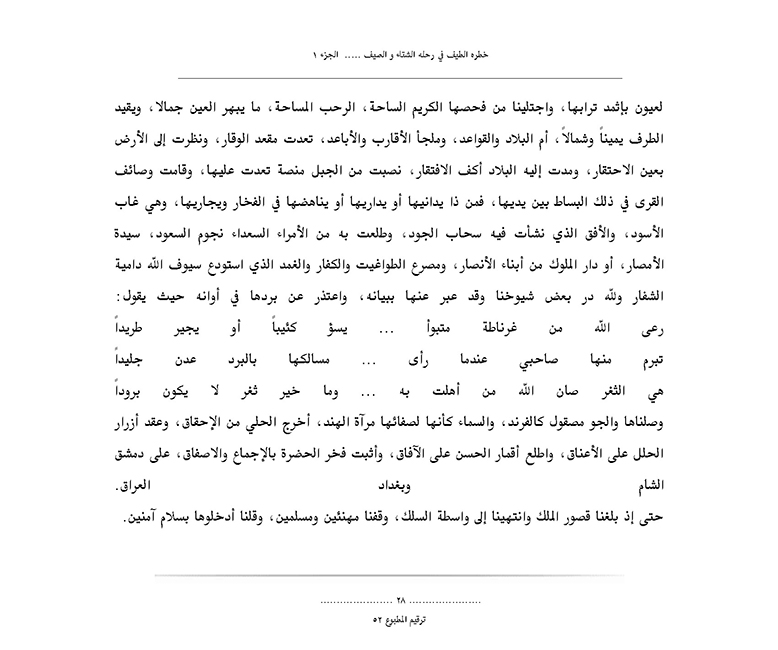 خطره الطيف في رحله الشتاء و الصيف ..... الجزء ١
لعيون بإثمد ترابها، واجتلينا من فحصها الكريم الساحة، الرحب المساحة، ما يبهر العين جمالا، ويقيد
الطرف يميناً وشمالاً، أم البلاد والقواعد، وملجأ الأقارب والأباعد، تعدت مقعد الوقار، ونظرت إلى الأرض
بعين الاحتقار، ومدت إليه البلاد أكف الافتقار، نصبت من الجبل منصة تعدت عليها، وقامت وصائف
القرى في ذلك البساط بين يديها، فمن ذا يدانيها أو يداريها أو يناهضها في الفخار ويجاريها، وهي غاب
الأسود، والأفق الذي نشأت فيه سحاب الجود، وطلعت به من الأمراء السعداء نجوم السعود، سيدة
الأمصار، أو دار الملوك من أبناء الأنصار، ومصرع الطواغيت والكفار والغمد الذي استودع سيوف الله دامية
الشفار ولله در بعض شيوخنا وقد عبر عنها ببيانه، واعتذر عن بردها في أوانه حيث يقول:
رعى الله من غرناطة متبوأ ... يسؤ كئيباً أو يجير طريداً
تبرم منها صاحبي عندما رأى ... مسالكها بالبرد عدن جليداً
هي الثغر صان الله من أهلت به ... وما خير ثغر لا يكون بروداً
وصلناها والجو مصقول كالفرند، والسماء كأنها لصفائها مرآة الهند، أخرج الحلي من الإحقاق، وعقد أزرار
الحلل على الأعناق، واطلع أقمار الحسن على الآفاق، وأثبت فخر الحضرة بالإجماع والاصفاق، على دمشق
الشام وبغداد العراق.
حتى إذ بلغنا قصور الملك وانتهينا إلى واسطة السلك، وقفنا مهنئين ومسلمين، وقلنا أدخلوها بسلام آمنين.
...................... ٢٨ ......................
ترقيم المطبوع ٥٢